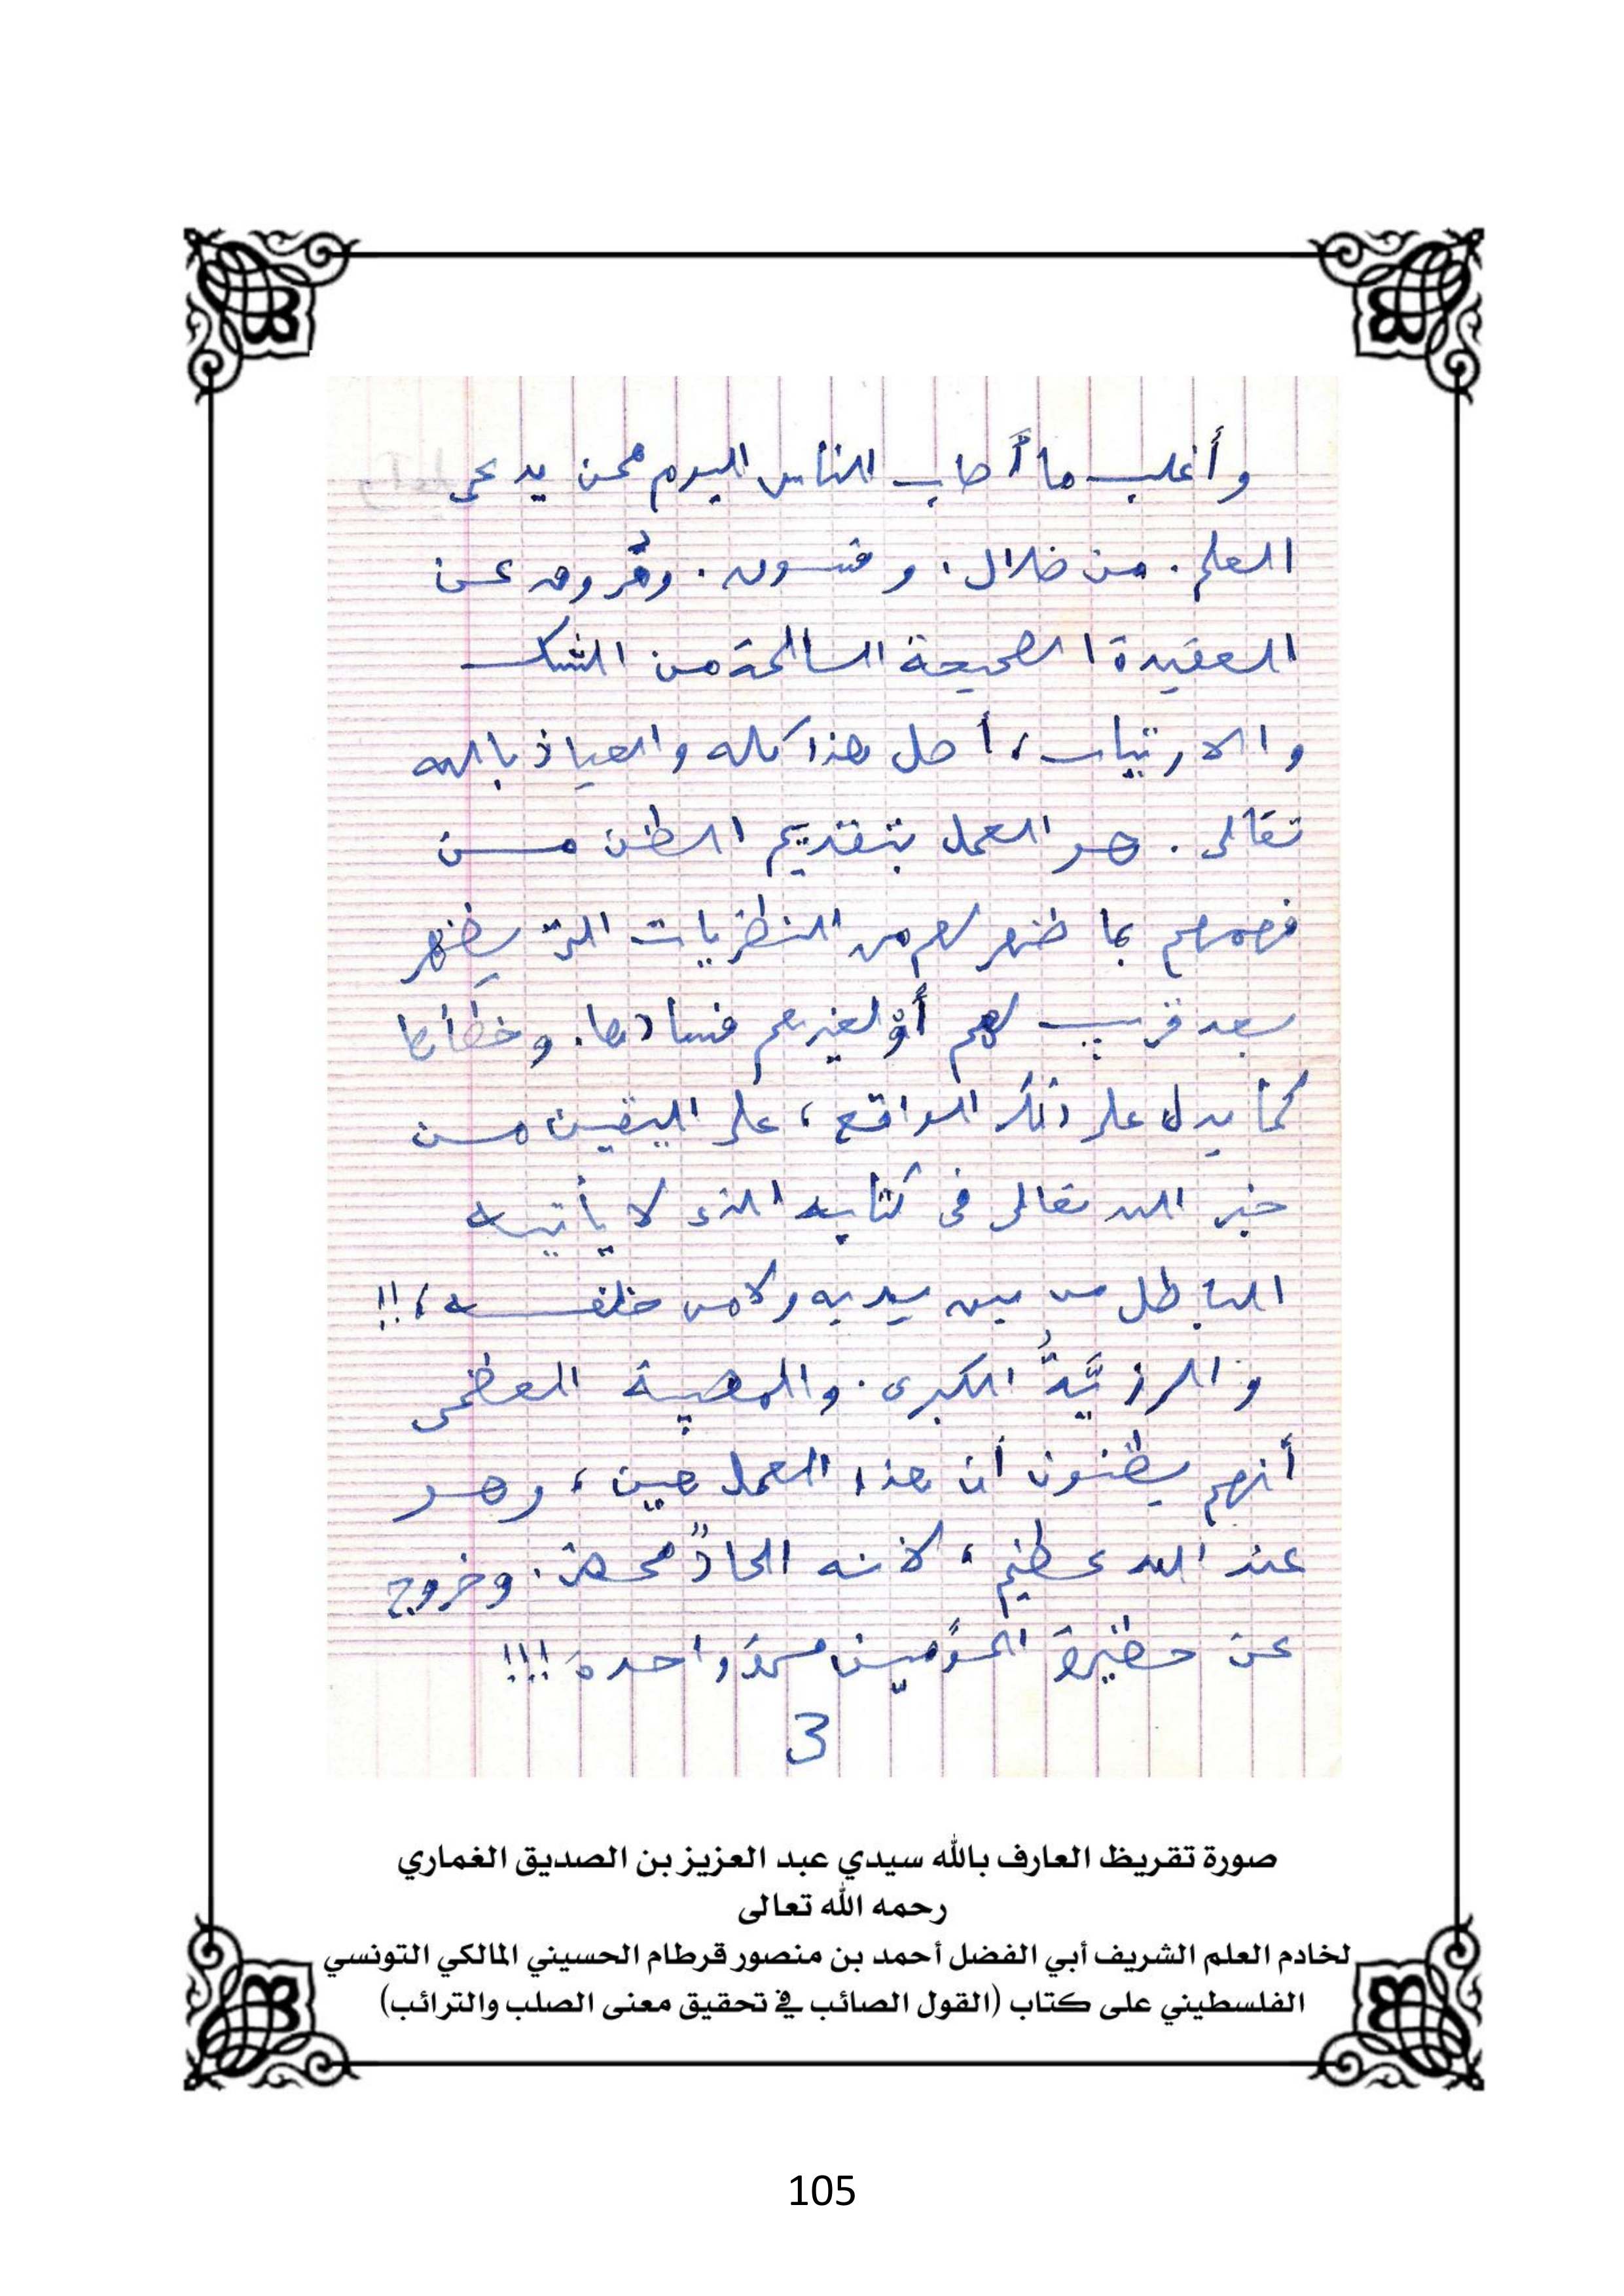 وأغلب ما أصاب الناس اليوم ممن يدعى
العلم. من ضلال. وفسوق. ومروق عن
العقيدة الصحيحة السالمة من الشك
والارتياب، أصل هذا كله والعياذ بالله
تعالى. هو العمل بتقديم الظن من
فهمهم بما ظهر لهم من النظريات التى يظهر
بعد قريب لهم أو لغيرهم فسادها. وخطأها
كما يدل على ذلك الواقع، على اليقين من
خبر الله تعالى فى كتابه الذى لا يأتيه
الباطل من بين يديه ولا من خلفه،!!
والرزيَّةُ الكبرى. والمصيبة العظمى
أنهم يظنون أن هذا العمل هين، وهو
عند الله عظيم، لأنه الحادٌ محض. وخروج
عن حظيرة المؤمنين مرة واحدة!!!
3
صورة تقريظ العارف بالله سيدي عبد العزيز بن الصديق الغماري
رحمه الله تعالى
لخادم العلم الشريف أبي الفضل أحمد بن منصور قرطام الحسيني المالكي التونسي
الفلسطيني على كتاب (القول الصائب في تحقيق معنى الصلب والترائب)
105